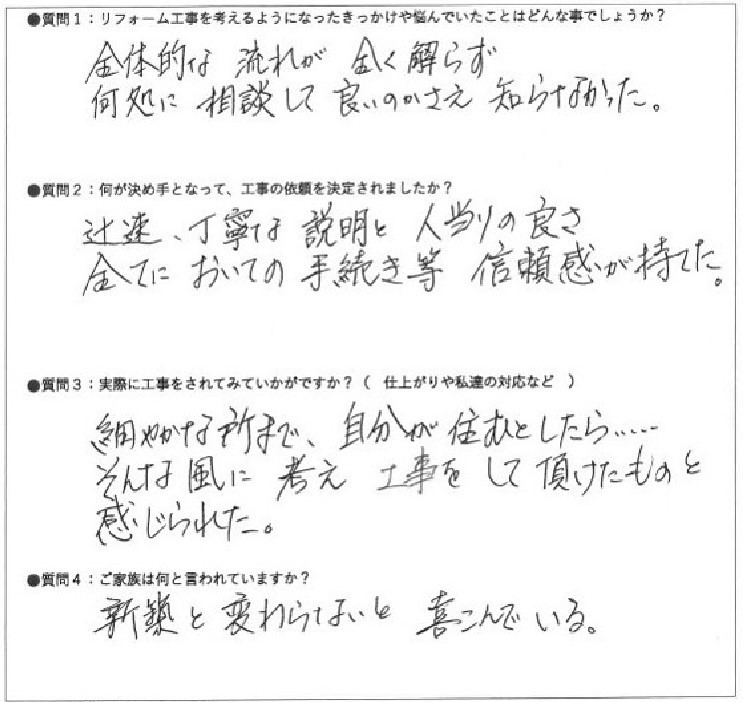 ●質問１：リフォーム工事を考えるようになったきっかけや悩んでいたことはどんな事でしょうか？
全体的な 流れが 全く 解らず
何処に 相談して 良いのかさえ 知らなかった。
●質問２：何が決め手となって、工事の依頼を決定されましたか？
辻速、丁寧な 説明と 人当りの良さ
全てに おいての 手続き等 信頼感が持てた。
●質問３：実際に工事をされてみていかがですか？（ 仕上がりや私達の対応など ）
細やかな所まで、自分が 住むとしたら……
そんな風に 考え 工事を して 頂けたものと
感じられた。
●質問４：ご家族は何と言われていますか？
新築と 変わらないと 喜こんでいる。